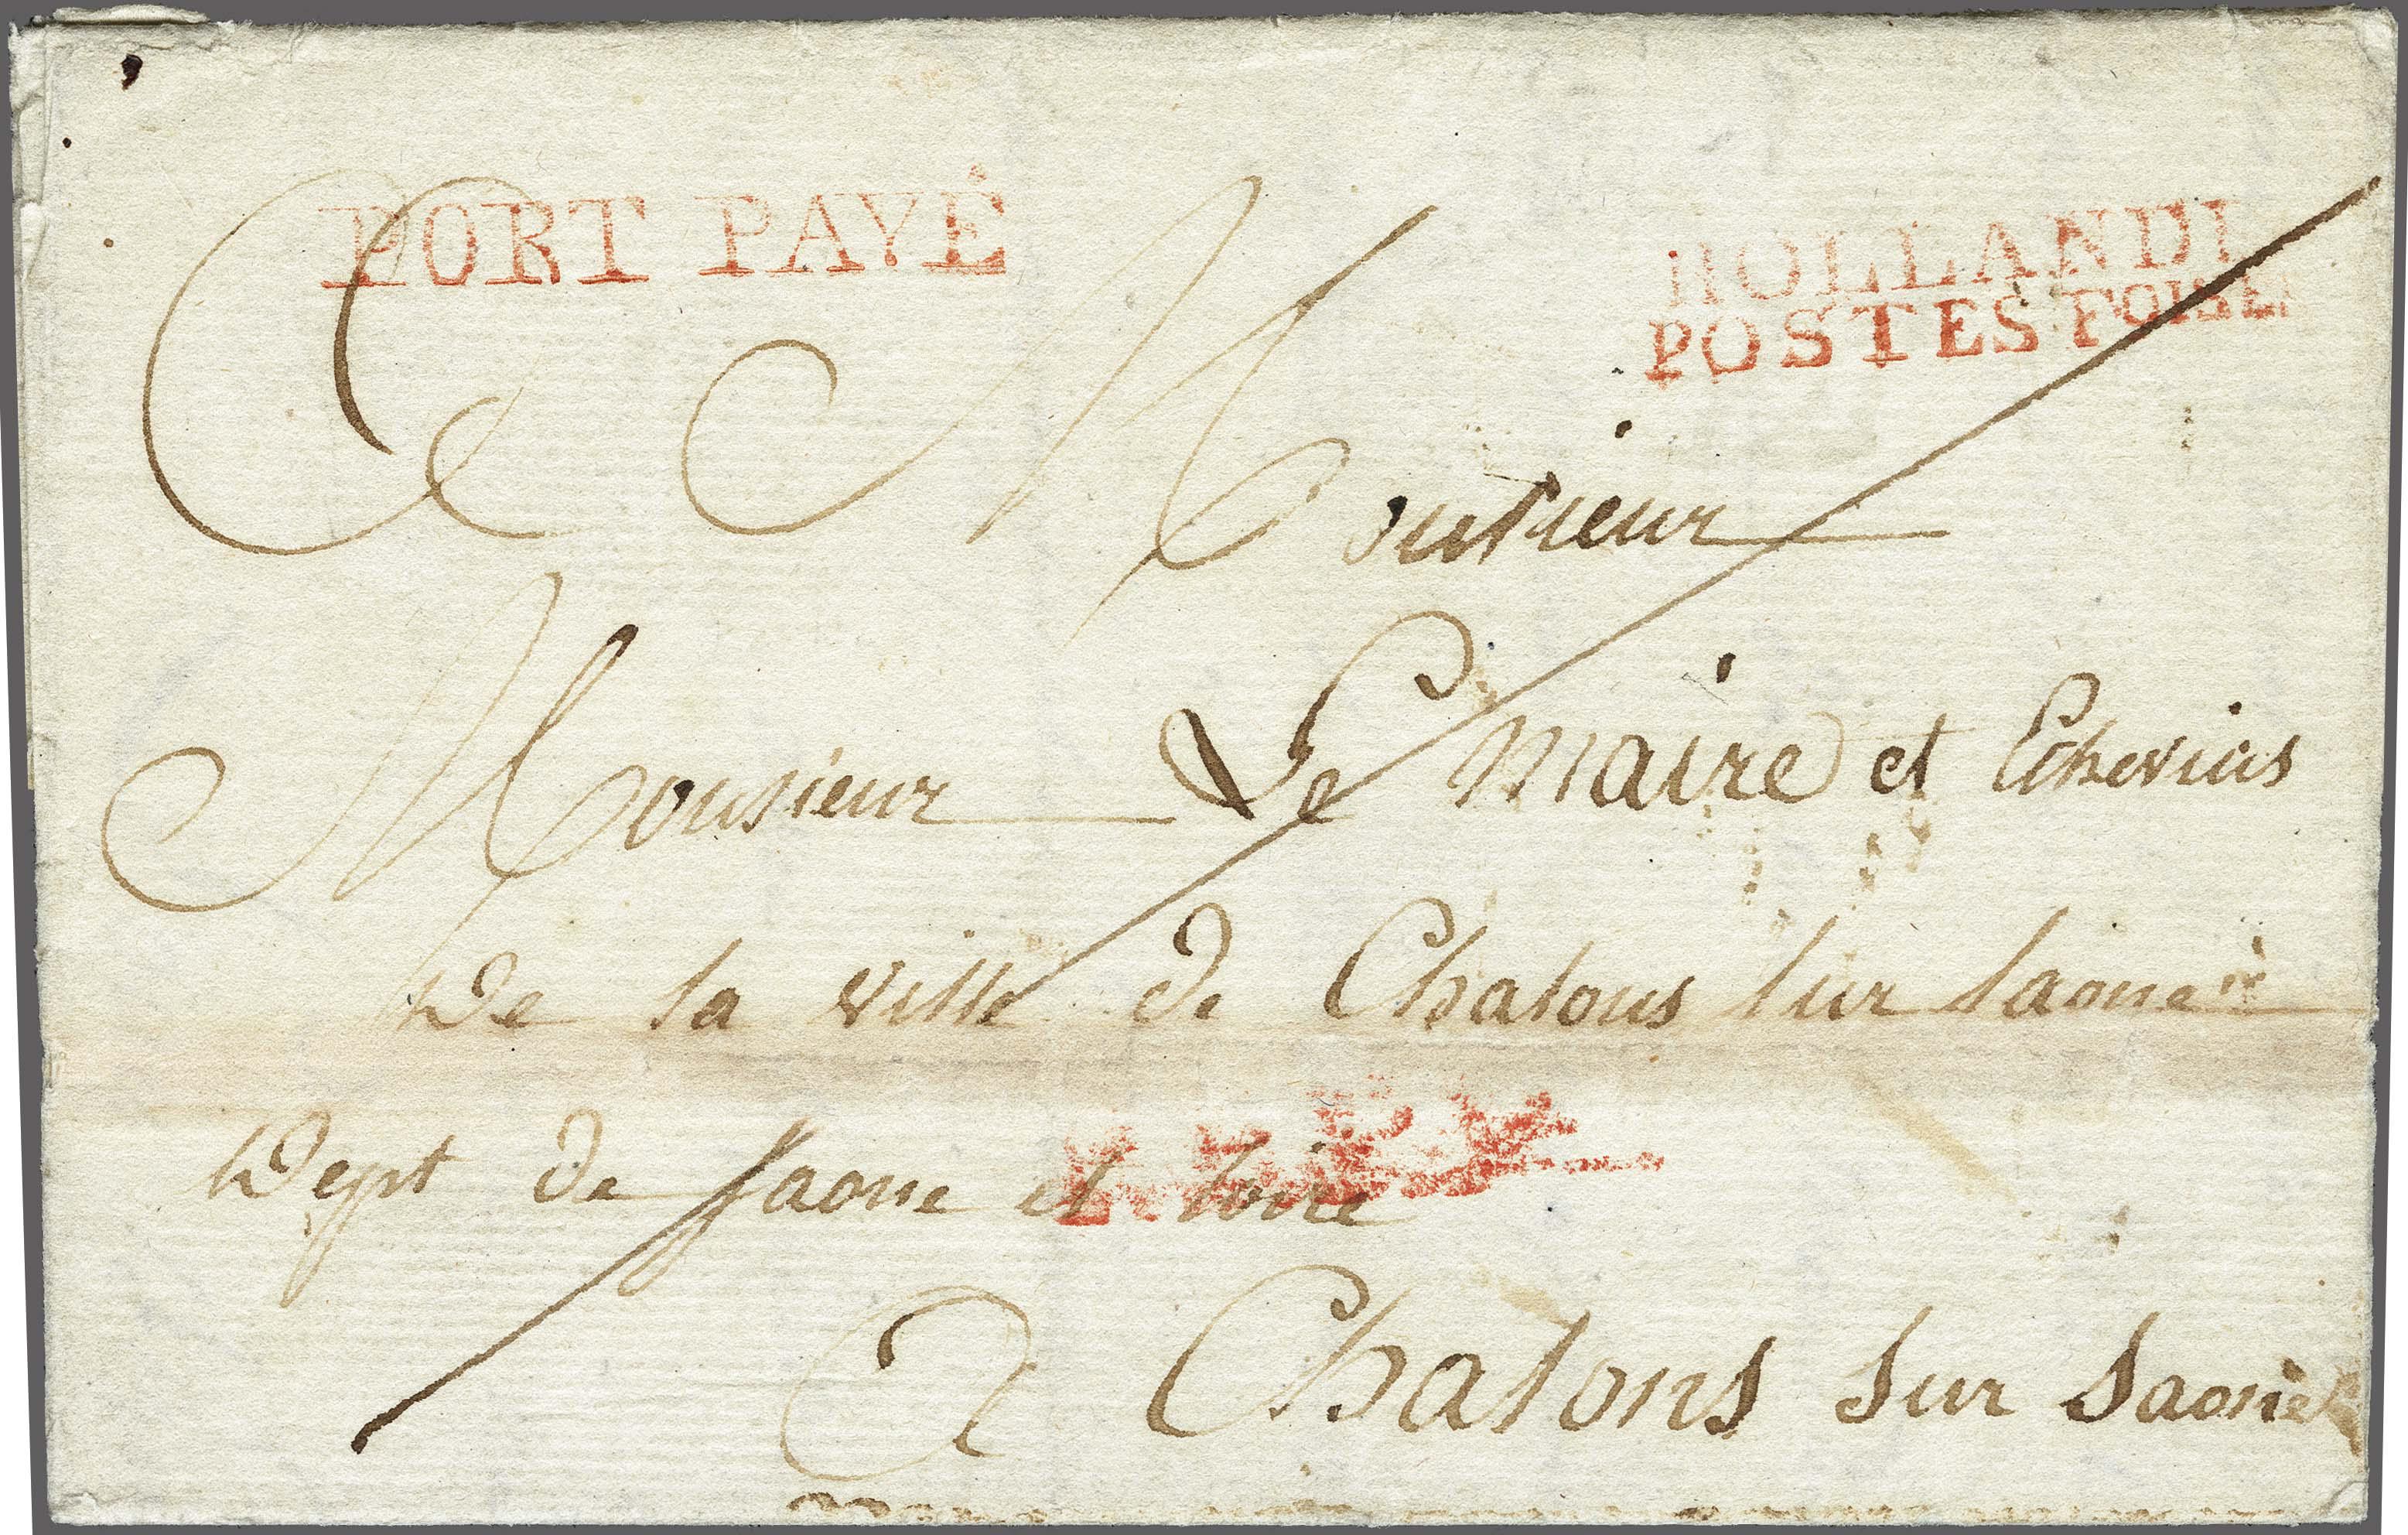 PORT PAYÉ
HOLLANDE
POSTES
A Monsieur
Monsieur Le maire et Echevins
De la ville de Chalons sur saone
Dept de saone et loire
A Chalons sur saone